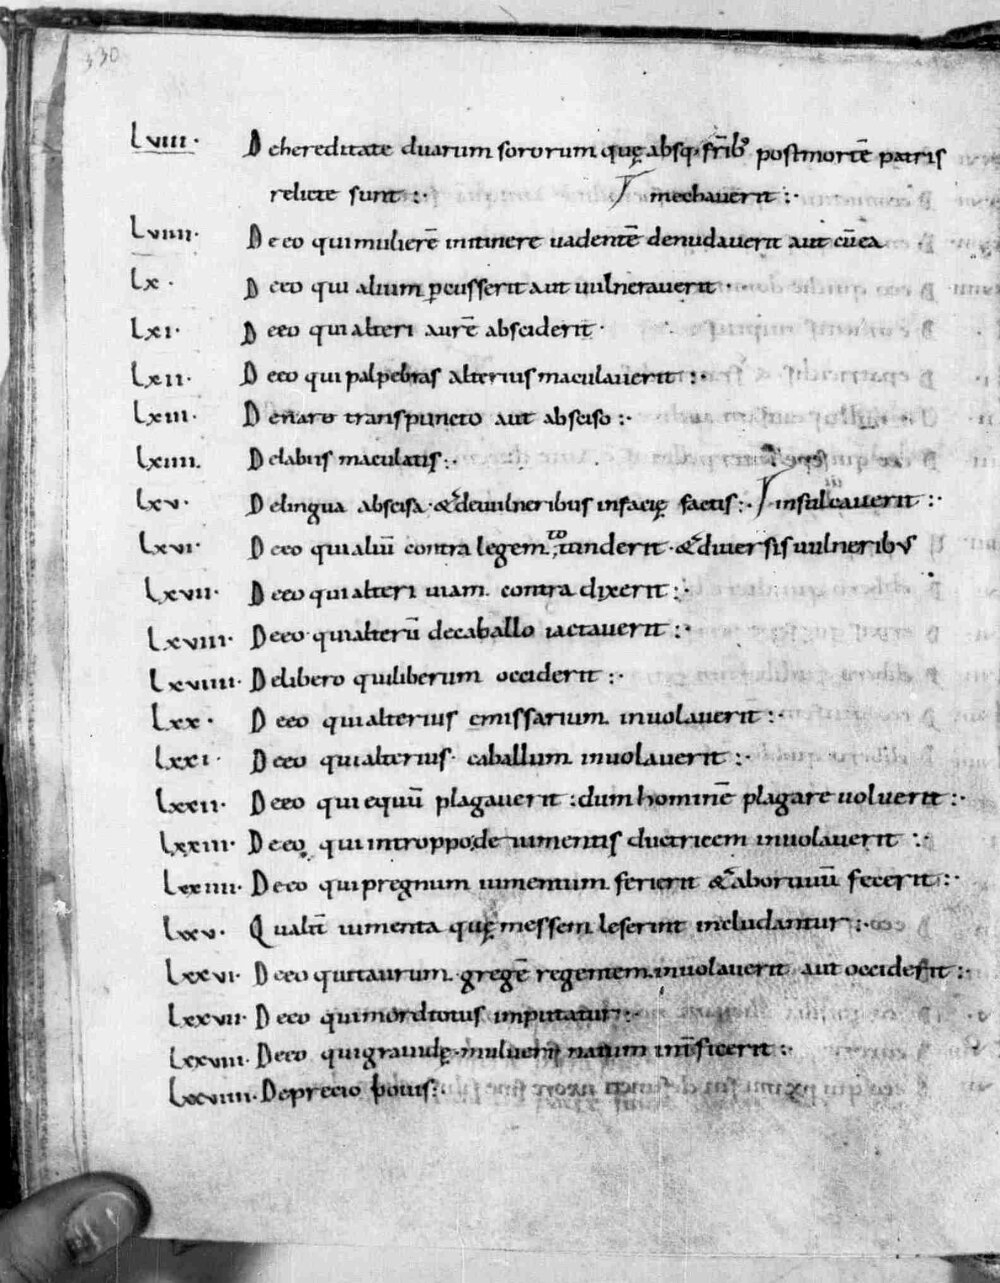 330
Lviii· De hereditate duarum sororum quę absq; fr̄ib; post mortē patris
relicte sunt :·
mechauerit :·
Lviiii· De eo qui mulierē in itinere uadentē denudauerit aut cū ea
Lx· De eo qui alium ꝑcusserit aut uulnerauerit ·
Lxi· De eo qui alteri aurē absciderit ·
Lxii· De eo qui palpebras alterius maculauerit :·
Lxiii· De naro transpuncto aut absciso :·
Lxiiii. De labiis maculatis :·
Lxv· De lingua abscisa · & de uulneribus in facię factis :· insulcauerit :·
Lxvi· De eo qui aliū contra legem totunderit · & diuersis uulneribus
Lxvii· De eo qui alteri uiam contra dixerit :·
Lxviii· De eo qui alterū de caballo iactauerit :·
Lxviiii· De libero qui liberum occiderit :·
Lxx· De eo qui alterius emissarium inuolauerit :·
Lxxi· De eo qui alterius caballum inuolauerit :·
Lxxii· De eo qui equū plagauerit : dum hominē plagare uoluerit :·
Lxxiii· De eo qui in troppo de iumentis ductricem inuolauerit :·
Lxxiiii· De eo qui pregnum iumentum ferierit & abortiuū fecerit :·
Lxxv· Qualit̄ iumenta quę messem leserint includantur :·
Lxxvi· De eo qui taurum gregē regentem inuolauerit aut occiderit :·
Lxxvii· De eo qui mordtotus imputatur :·
Lxxviii· De eo qui grauidę mulieri natum int̄ficerit :·
Lxxviiii· De precio bouis :·